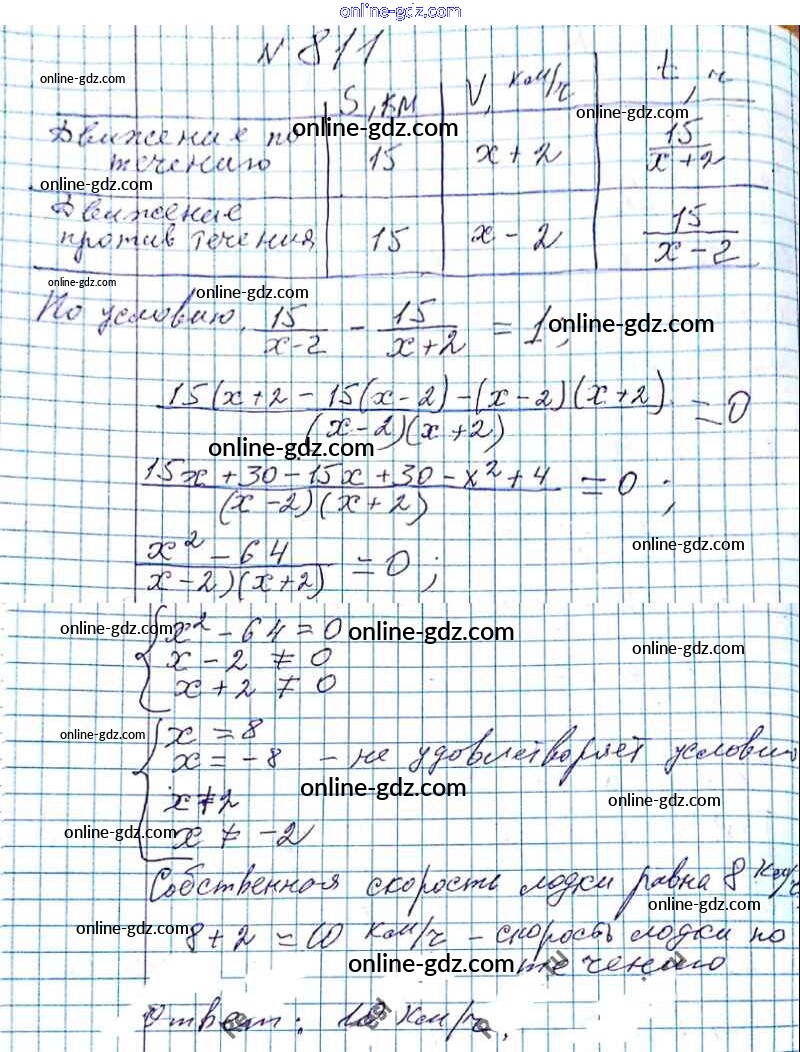 online-gdz.com
N 811
online-gdz.com
S, км V, км/ч t, ч
online-gdz.com
online-gdz.com
Движение по течению 15 x + 2 15/(x + 2)
online-gdz.com
Движение против течения 15 x - 2 15/(x - 2)
online-gdz.com
По условию, 15/(x-2) - 15/(x+2) = 1;
online-gdz.com
(15(x+2 - 15(x-2) - (x-2)(x+2))/((x-2)(x+2)) = 0
online-gdz.com
(15x + 30 - 15x + 30 - x² + 4)/((x-2)(x+2)) = 0;
online-gdz.com
(x² - 64)/(x-2)(x+2) = 0;
online-gdz.com
x² - 64 = 0
online-gdz.com
x - 2 ≠ 0
online-gdz.com
x + 2 ≠ 0
x = 8
online-gdz.com
x = -8 - не удовлетворяет условию
online-gdz.com
x ≠ 2
online-gdz.com
x ≠ -2
online-gdz.com
Собственная скорость лодки равна 8 км/ч
online-gdz.com
8 + 2 = 10 км/ч - скорость лодки по
online-gdz.com
течению
online-gdz.com
Ответ: 10 км/ч.